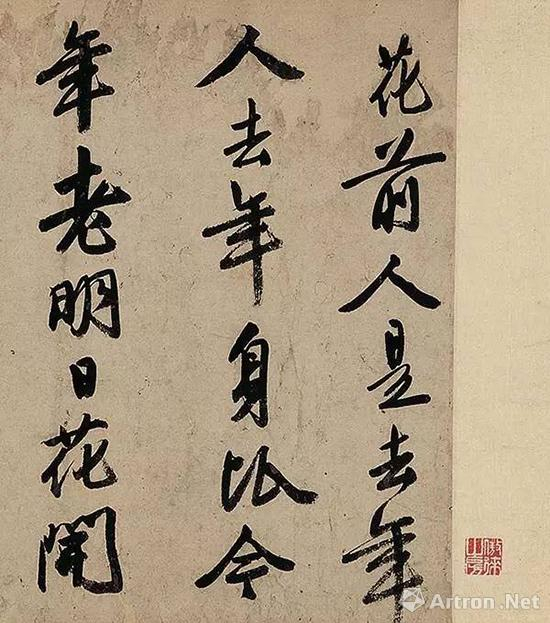 花前人是去年
人去年身比今
年老明日花開
Artron.Net